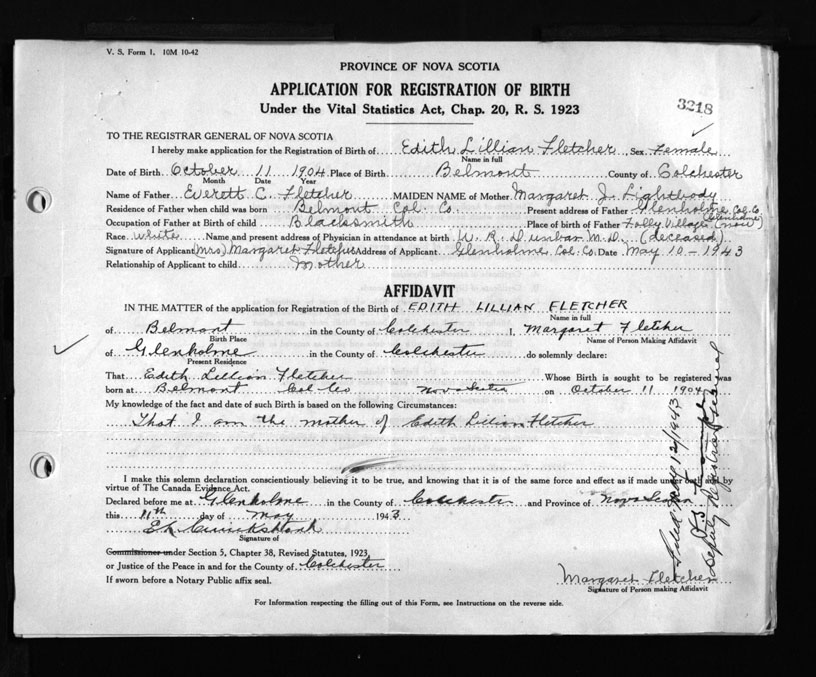 V. S. Form 1. 10M 10-42
PROVINCE OF NOVA SCOTIA
APPLICATION FOR REGISTRATION OF BIRTH
Under the Vital Statistics Act, Chap. 20, R. S. 1923
3218
TO THE REGISTRAR GENERAL OF NOVA SCOTIA
I hereby make application for the Registration of Birth of Edith Lillian Fletcher, Sex Female
Name in full
Date of Birth October 11 1904 Place of Birth Belmont County of Colchester
Month Date Year
Name of Father Everett C. Fletcher MAIDEN NAME of Mother Margaret J. Lightbody
Residence of Father when child was born Belmont Col. Co. Present address of Father Glenholme Col. Co.
Occupation of Father at Birth of child Blacksmith Place of Birth of Father Folly Village (now Glenholme)
Race white Name and present address of Physician in attendance at birth W. R. Dunbar M.D. (deceased)
Signature of Applicant (Mrs) Margaret Fletcher Address of Applicant Glenholme Col. Co. Date May 10 - 1943
Relationship of Applicant to child Mother
AFFIDAVIT
IN THE MATTER of the application for Registration of the Birth of EDITH LILLIAN FLETCHER
Name in full
of Belmont in the County of Colchester I, Margaret Fletcher
Birth Place Name of Person Making Affidavit
of Glenholme in the County of Colchester do solemnly declare:
Present Residence
That Edith Lillian Fletcher Whose Birth is sought to be registered was
born at Belmont Col Co Nova Scotia on October 11 1904
My knowledge of the fact and date of such Birth is based on the following Circumstances:
That I am the mother of Edith Lillian Fletcher
I make this solemn declaration conscientiously believing it to be true, and knowing that it is of the same force and effect as if made under oath and by
virtue of The Canada Evidence Act.
Declared before me at Glenholme in the County of Colchester and Province of Nova Scotia
this 11th day of May 1943
Signature of
Commissioner under Section 5, Chapter 38, Revised Statutes, 1923
or Justice of the Peace in and for the County of Colchester
If sworn before a Notary Public affix seal.
Margaret Fletcher
Signature of Person making Affidavit
For Information respecting the filling out of this Form, see Instructions on the reverse side.
Filed May 12/1943
Deputy Registrar General